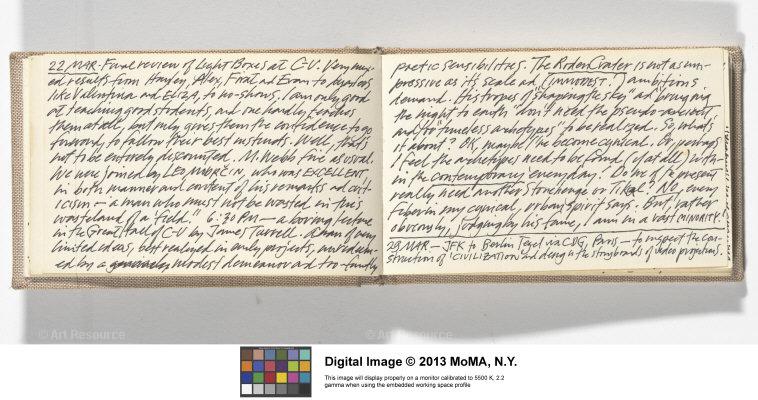 22 MAR - Final review of Light Boxes at C-U. Very mix-
ed results from Hayden, Alex, Firat ad Evan to disasters
like Valentina ad ELIZA, to no-shows. I am only good
at teaching good students, and one hardly teaches
them at all, but only gives them the confidence to go
forward, to follow their best instincts. Well, that's
not to be entirely discounted. M. Webb fine as usual.
We were joined by LEO MODRCIN, who was EXCELLENT
in both manner and content of his remarks ad crit-
icism - a man who must not be wasted in "this
wasteland of a field." 6:30 PM - a boring lecture
in the Great Hall of C-U by James Turrell. A man of very
limited ideas, best realized in early projects, and redeem-
ed by a modest demeanor ad too-few
poetic sensibilities. The Roden Crater is not as im-
pressive as its scale ad (IMMODEST!) ambitions
demand. His tropes of "shaping the sky" ad "bringing
the light to earth" don't need the pseudo-ancient
and/or "timeless archetypes" to be realized. So, what's
it about? OK, maybe I've become cynical. Or, perhaps
I feel the archetypes need to be found (if at all) with-
in the contemporary everyday. Do we of the present
really need another Stonehenge or Tikal? No, every
fiber in my cynical, urban spirit says. But rather
obviously, judging by his fame, I am in a vast MINORITY!
29 MAR - JFK to Berlin Tegel via CDG, Paris - to inspect the con-
struction of 'CIVILIZATION' ad design the storyboards of video projections.
© Art Resource
© Art Resource
Digital Image © 2013 MoMA, N.Y.
This image will display properly on a monitor calibrated to 5500 K, 2.2
gamma when using the embedded working space profile